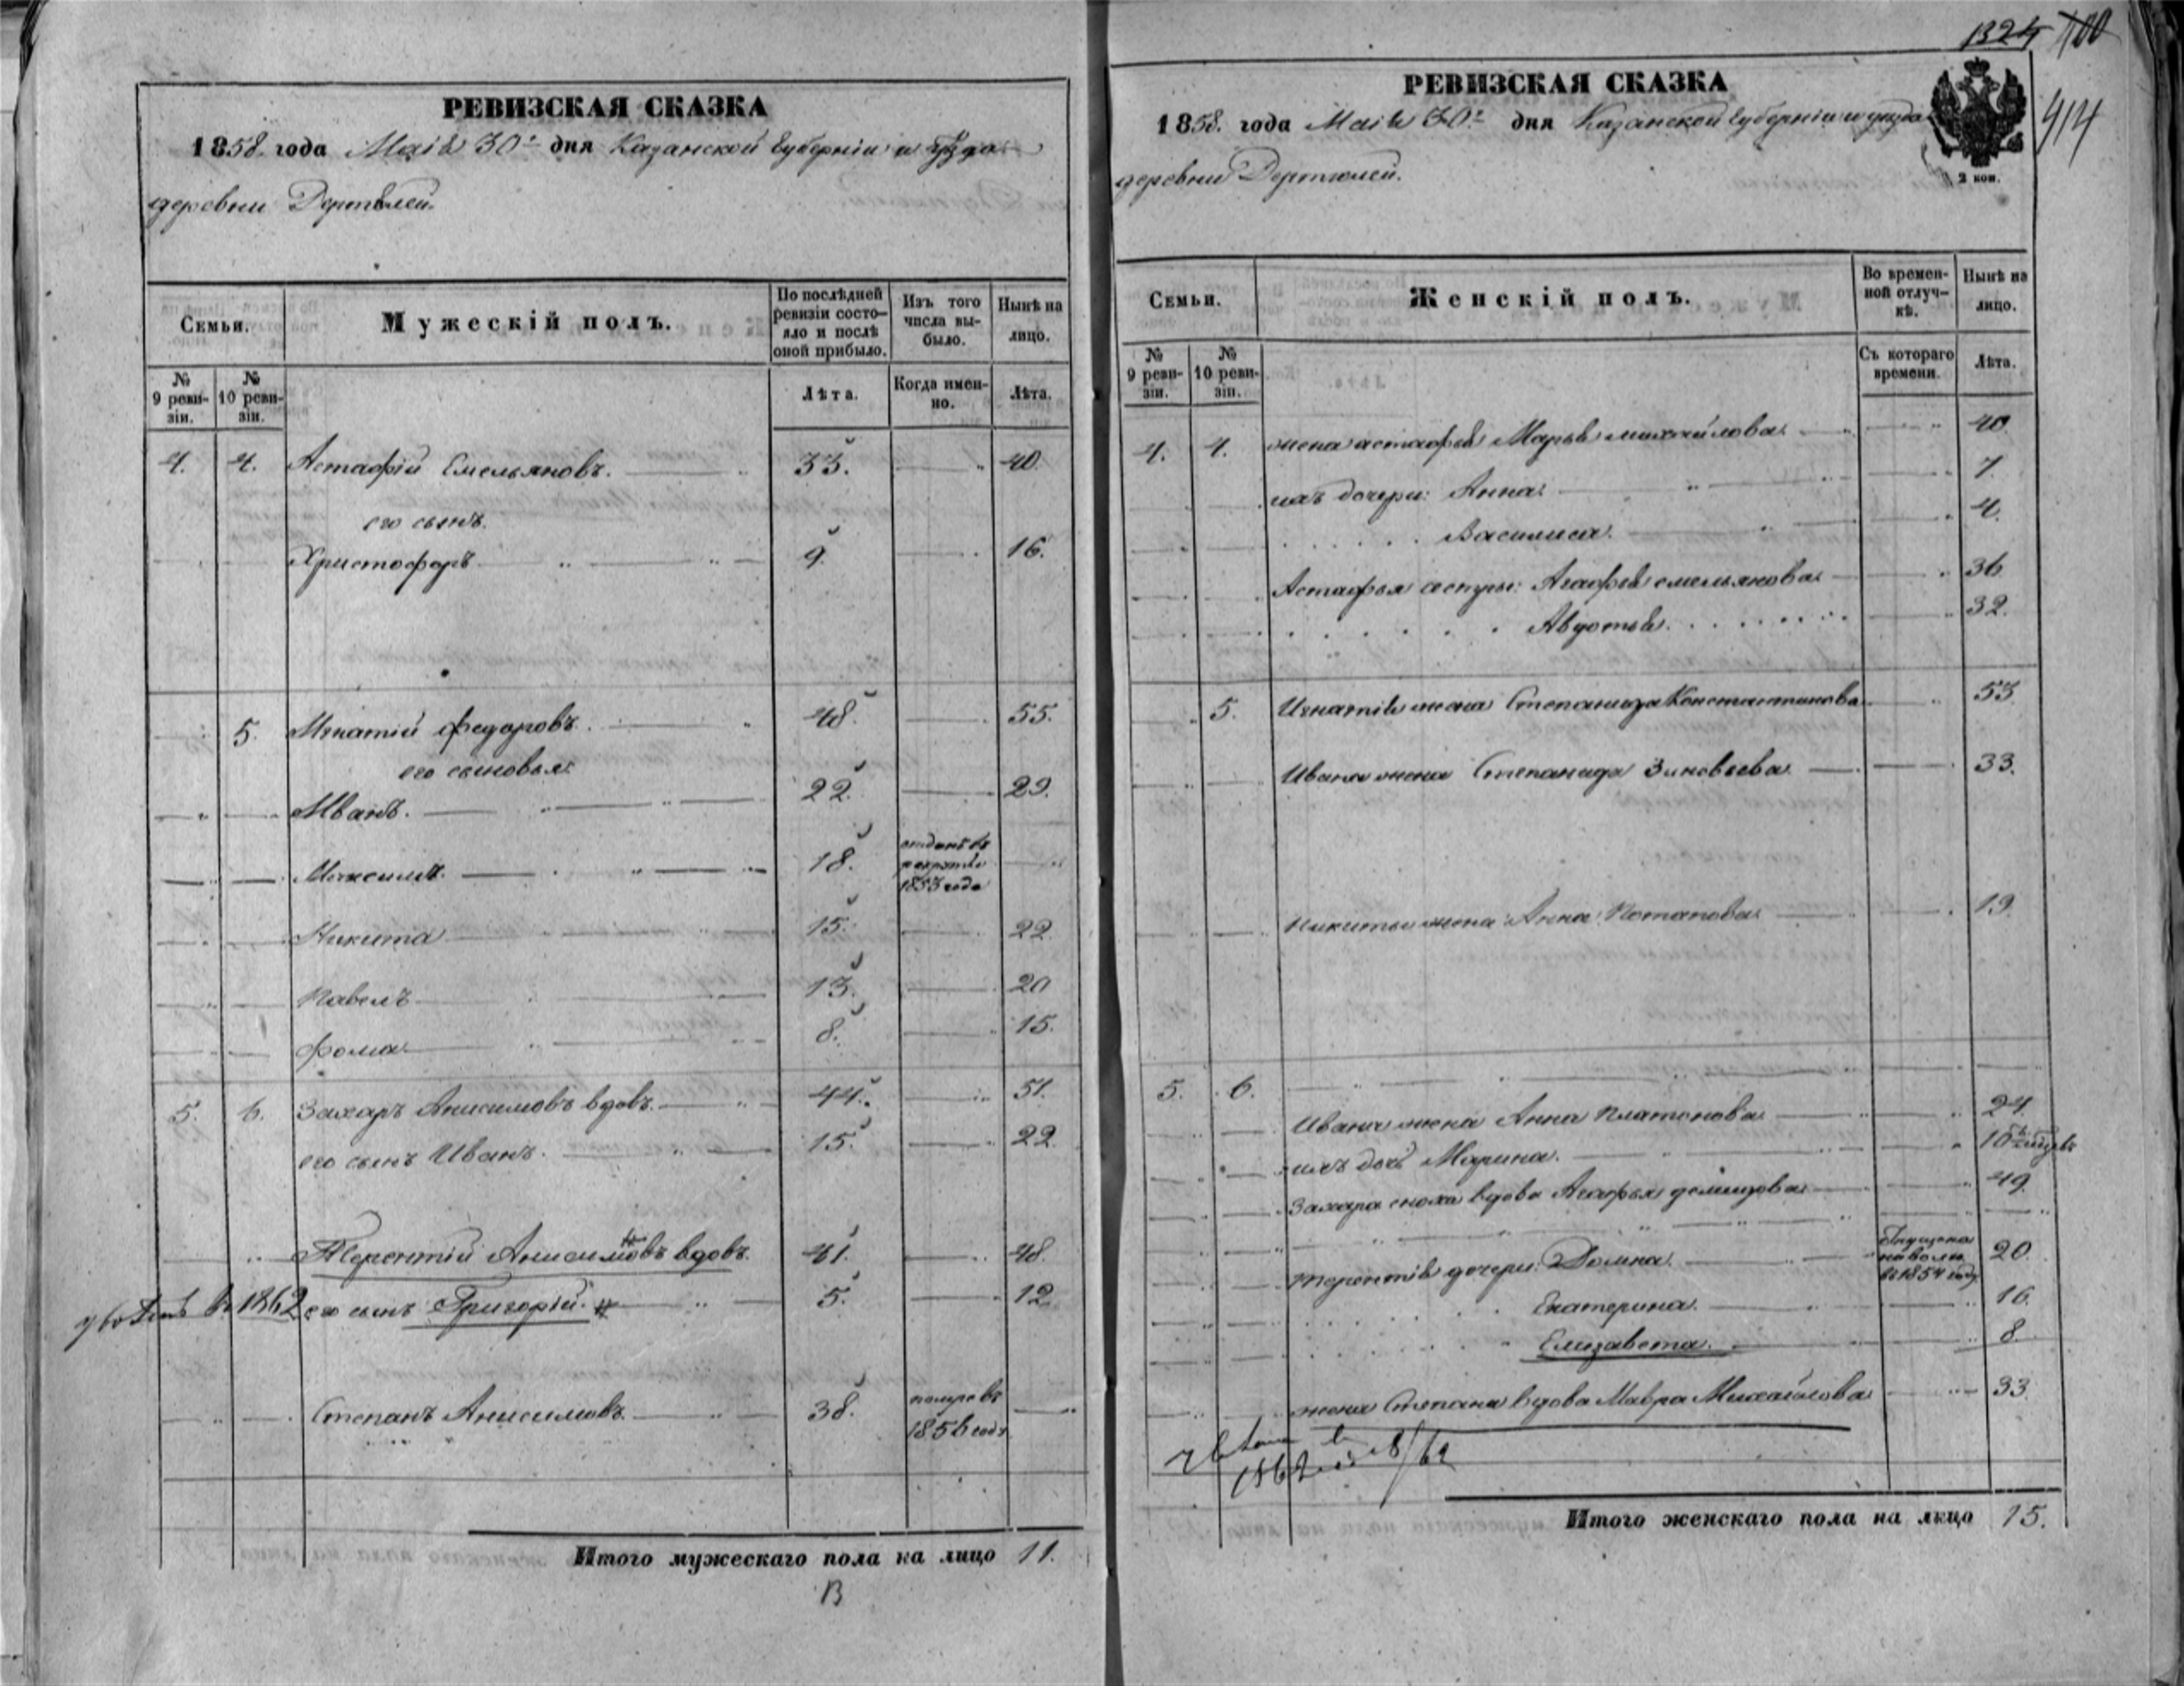 РЕВИЗСКАЯ СКАЗКА
1858. года Маія 30. дня Казанской Губерніи и уѣзда
деревни Дертюлей.
Семьи.
Мужескій полъ.
По послѣдней ревизіи состояло и послѣ оной прибыло.
Изъ того числа выбыло.
Нынѣ на лицо.
№ 9 ревизіи.
№ 10 ревизіи.
Лѣта.
Когда именно.
Лѣта.
4. 4. Астафій Емельяновъ. 33. 40.
его сынъ.
Христофоръ 9. 16.
5. Игнатій Федоровъ. 48. 55.
его сыновья:
Иванъ. 22. 29.
Максимъ. 18. отданъ въ рекруты 1853 года
Никита 15. 22.
Павелъ 13. 20
Фома 8. 15.
5. 6. Захаръ Анисимовъ вдовъ. 44. 51.
его сынъ Иванъ. 15. 22.
Терентій Анисимовъ вдовъ. 41. 48.
1862 его сынъ Григорій. 5. 12
Степанъ Анисимовъ 38. померъ въ 1856 году
Итого мужескаго пола на лицо 11.
В
1324 400
414
РЕВИЗСКАЯ СКАЗКА
1858. года Маія 30. дня Казанской Губерніи и уѣзда
деревни Дертюлей.
2 коп.
Семьи.
Женскій полъ.
Во временной отлучкѣ.
Нынѣ на лицо.
№ 9 ревизіи.
№ 10 ревизіи.
Съ котораго времени.
Лѣта.
4. 4. жена астафья Марья михайлова 40.
ихъ дочери: Анна 7.
Василиса. 4.
Астафья сестры: Агафья емельянова 36
Авдотья. 32.
5. Игнатія жена Степанида Константинова 53
Ивана жена Степанида Зиновьева 33.
Никиты жена Анна Потапова 19.
5. 6.
Ивана жена Анна Платонова 24.
ихъ дочь Марина. 10
Захара сноха вдова Агафья демидова 49.
Терентія дочери: Домна отпущена на волю въ 1854 году 20.
Екатерина. 16.
Елизавета. 8
жена Степана вдова Мавра Михайлова 33
Итого женскаго пола на лицо 15.